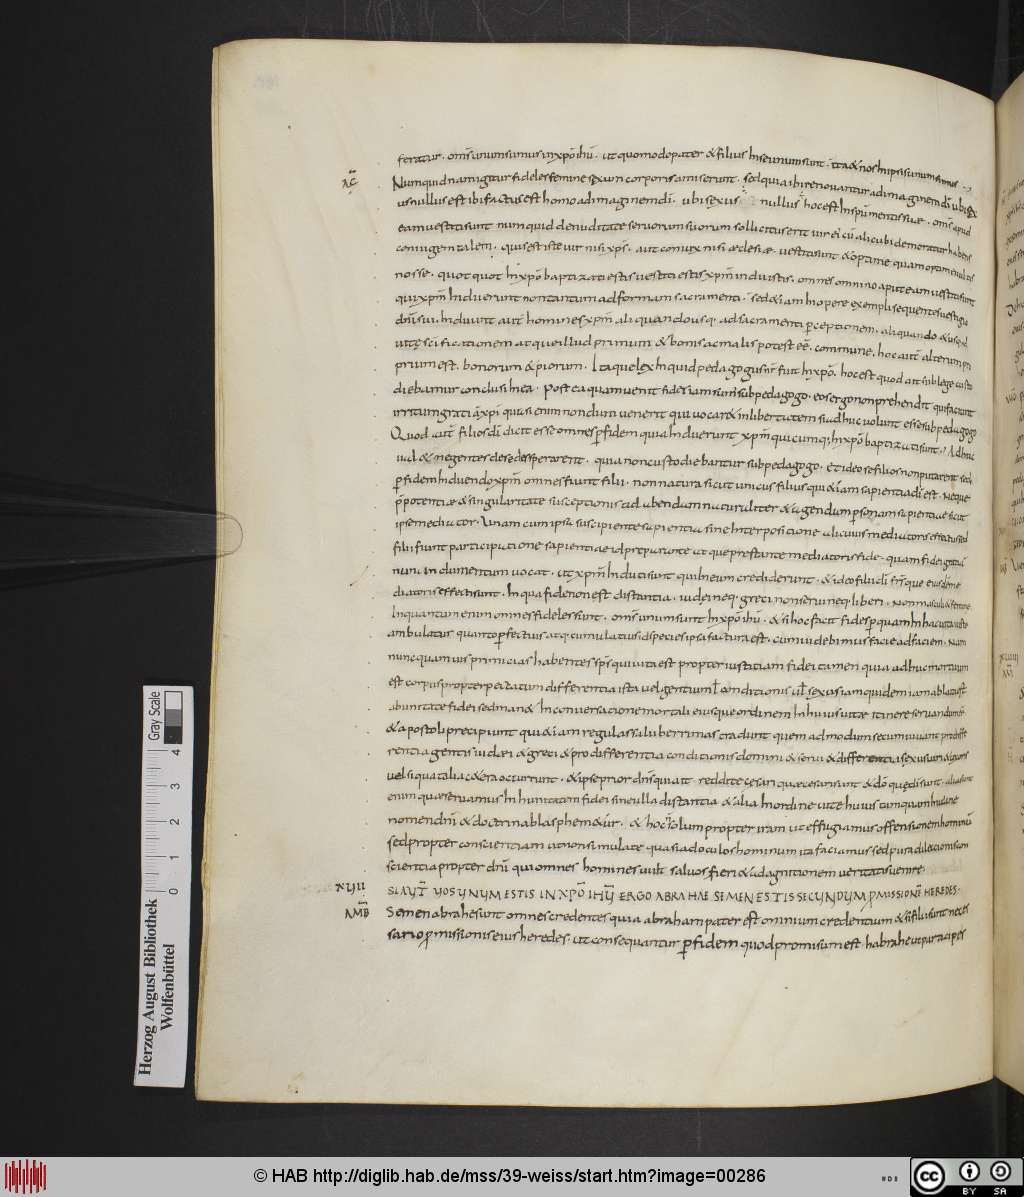 feratur. om̄s unum sumus in xp̄o ih̄u. ut quomodo pater & filius In se unum sunt. ita & nos In ipsi unum simus.
AC̄
Numquidnam igitur fideles femine sexum corporis amiserunt. sed quia ibi renovantur ad imaginem dī ubi sex
us nullus est ibi factus est homo ad imaginem dī. ubi sexus nullus hoc est In sp̄u mentis suae. om̄s apud
eam vestiti sunt numquid de nuditate servorum suorum sollicitus erit vir ei cū alicubi demoratur habens
coniugem talem. quis est iste vir nisi xp̄s. aut coniux nisi aeclesiae. vestiti sunt & optime quam optem
nosse. quotquot In xp̄o baptizati estis vestiti estis xp̄m induistis. omnes omnino aput eum vestiti sunt
qui xp̄m Induerunt non tantum ad formam sacramenti. sed & iam In opere exempli sequentes vestigia
dn̄i sui. Induunt aut̄ homines xp̄m aliquando usq. ad sacramenti perceptionem. aliquando & usq. ad
vitę sc̄ificationem atque illud primum & bonis ac malis potest eē. commune. hoc aut̄ alterum pro
prium est. bonorum & piorum. Itaque lex In quid pedagogus nr̄ fuit In xp̄o. hoc est quod ait sub lege custo
diebamur conclusi In ea. Postea quam venit fides iam sumus sub pedagogo. eos ergo nonprehendit qui faciunt
irritum gratiā xp̄i quasi enim nondum venerit qui vocar& in libertatem si adhuc volunt esse sub pedagogo
Quod aut̄ filios dī dicit esse omnes p fidem quia Induerunt xp̄m quicumq; In xp̄o baptizati sunt. Ad hoc
val& ne gentes de se desperarent. quia non custodiebantur sub pedagogo. et ideo se filios non putarent sed
p fidem Induendo xp̄m omnes fiunt filii. non natura sicut unicus filius qui &iam sapientia dī est. Neque
p potentiae & singularitate susceptionis ad habendum naturaliter & agendum personam sapientiae sicut
ipse mediator. Unam cum ipsa suscipiente sapientia sine Interpositione alicuius mediatoris effectus sed
filii fiunt participatione sapientiae id preparante atque prestante mediatoris fide. quam fidei gratiā
nunc indumentum vocat. ut xp̄m Induti sunt qui In eum crediderunt. & ideo filii dī fr̄sque eius
diatoris effecti sunt. In qua fide non est distantia. iudei neq. greci non servi neq. liberi. Non masculi & femine
In quantum enim omnes fideles sunt. om̄s unum sunt In xp̄o ih̄u. & si hoc facit fides p quam In hac vita iuste
ambulatur quanto pfectius atq. cumulatius id species ipsa factura est. cum videbimus facie ad faciem. Nam
nunc quamvis primicias habentes sp̄s qui vita est propter iustitiam fidei tamen quia adhuc mortuum
est corpus propter peccatum differentia ista vel gentium ł conditionis vł sexus iam quidem iam ablata est
ab unitate fidei sed man& In conversatione mortali eiusque ordinem In huius vitae itinere servandum
& apostoli precipiunt qui &iam regulas saluberrimas tradunt quem admodum secum vivant pro diffe
rentia gentis iudaei & greci & pro differentia conditionis domini & servi & differentia sexus viri & uxoris
vel si qua talia c&era occurrunt. & ipse prior dn̄s qui ait reddite cesari quae cesaris sunt & dō quę dī sunt. alia sunt
enim quae servamus In hunitatem fidei sine ulla distantia & alia In ordine vite huius tamquam In via ne
nomen dn̄i & doctrina blasphem&ur. & hoc n̄ solum propter iram ut effugiamus offensionem hominum
sed propter conscientiam ut non simulate quasi ad oculos hominum ita faciamus sed pura dilectionis con
scientia propter dn̄ qui omnes homines vult salvos fieri & ad agnitionem veritatis venire.
XVIII
SI AUT̄ VOS UNUM ESTIS IN XP̄O IHŪ ERGO ABRAHAE SEMEN ESTIS SECUNDUM PMISSIONĒ HEREDES.
AMB̄
Semen abrahe sunt omnes credentes quia abraham pater est omnium credentium & si filii sunt neces
sario pmissionis eius heredes. ut consequantur p fidem quod promisum est habrahe ut participes
Herzog August Bibliothek
Wolfenbüttel
0 1 2 3 4
Gray Scale
© HAB http://diglib.hab.de/mss/39-weiss/start.htm?image=00286
cc BY SA